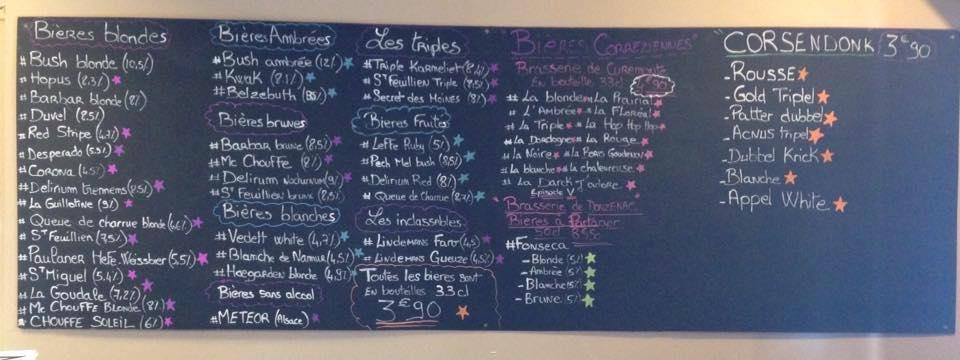 Bières blondes
# Bush blonde (10,5%)
# Hopus (8,3%)
# Barbar blonde (8%)
# Duvel (8,5%)
# Red Stripe (4,7%)
# Desperado (5,9%)
# Corona (4,5%)
# Delirium tremens (8,5%)
# La Guillotine (9%)
# Queue de charrue blonde (6,6%)
# St Feuillien (7,5%)
# Paulaner Hefe Weissbier (5,5%)
# St Miguel (5.4%)
# La Goudale (7,2%)
# Mc Chouffe Blonde (8%)
# CHOUFFE SOLEIL (6%)
Bières Ambrées
# Bush ambrée (12%)
# Kwak (8.4%)
# Belzebuth
Bières brunes
# Barbar brune (8,5%)
# Mc Chouffe (8%)
# Delirium Nocturnum (9%)
# St Feuillien brune (8,5%)
Bières blanches
# Vedett white (4,7%)
# Blanche de Namur (4,5%)
# Hoegarden blanche (4,9%)
Bières sans alcool
# METEOR (Alsace)
Les triples
# Triple Karmeliet (8,4%)
# St Feuillien Triple (8,5%)
# Secret des Moines (8%)
Bières Fruitées
# Leffe Ruby (5%)
# Pech Mel bush (8,5%)
# Delirium Red (8%)
# Queue de Charrue (8,7%)
Les inclassables
# Lindemans Faro (4,5)
# Lindemans Gueuze (4,5%)
Toutes les bières sont
en bouteilles 33cl
3€90
Bières Corréziennes
Brasserie de Curemonte
En bouteille 33cl
# La blonde # La Prairial
# L'Ambrée # La Floréal
# La Triple # La Hop Hop Hop
# La Dordogne # La Rouge
# La Noire
# La blanche # La chaleureuse
# La Darck J'adore
Episode V
Brasserie de DONZENAC
Bières à Partager
50cl 8.5€
# Fonseca
- Blonde (5%)
- Ambrée (5%)
- Blanche (5%)
- Brune (5%)
"CORSENDONK" 3€90
- Rousse
- Gold Triple
- Patter dubbel
- Agnus tripel
- Dubbel Krick
- Blanche
- Appel White